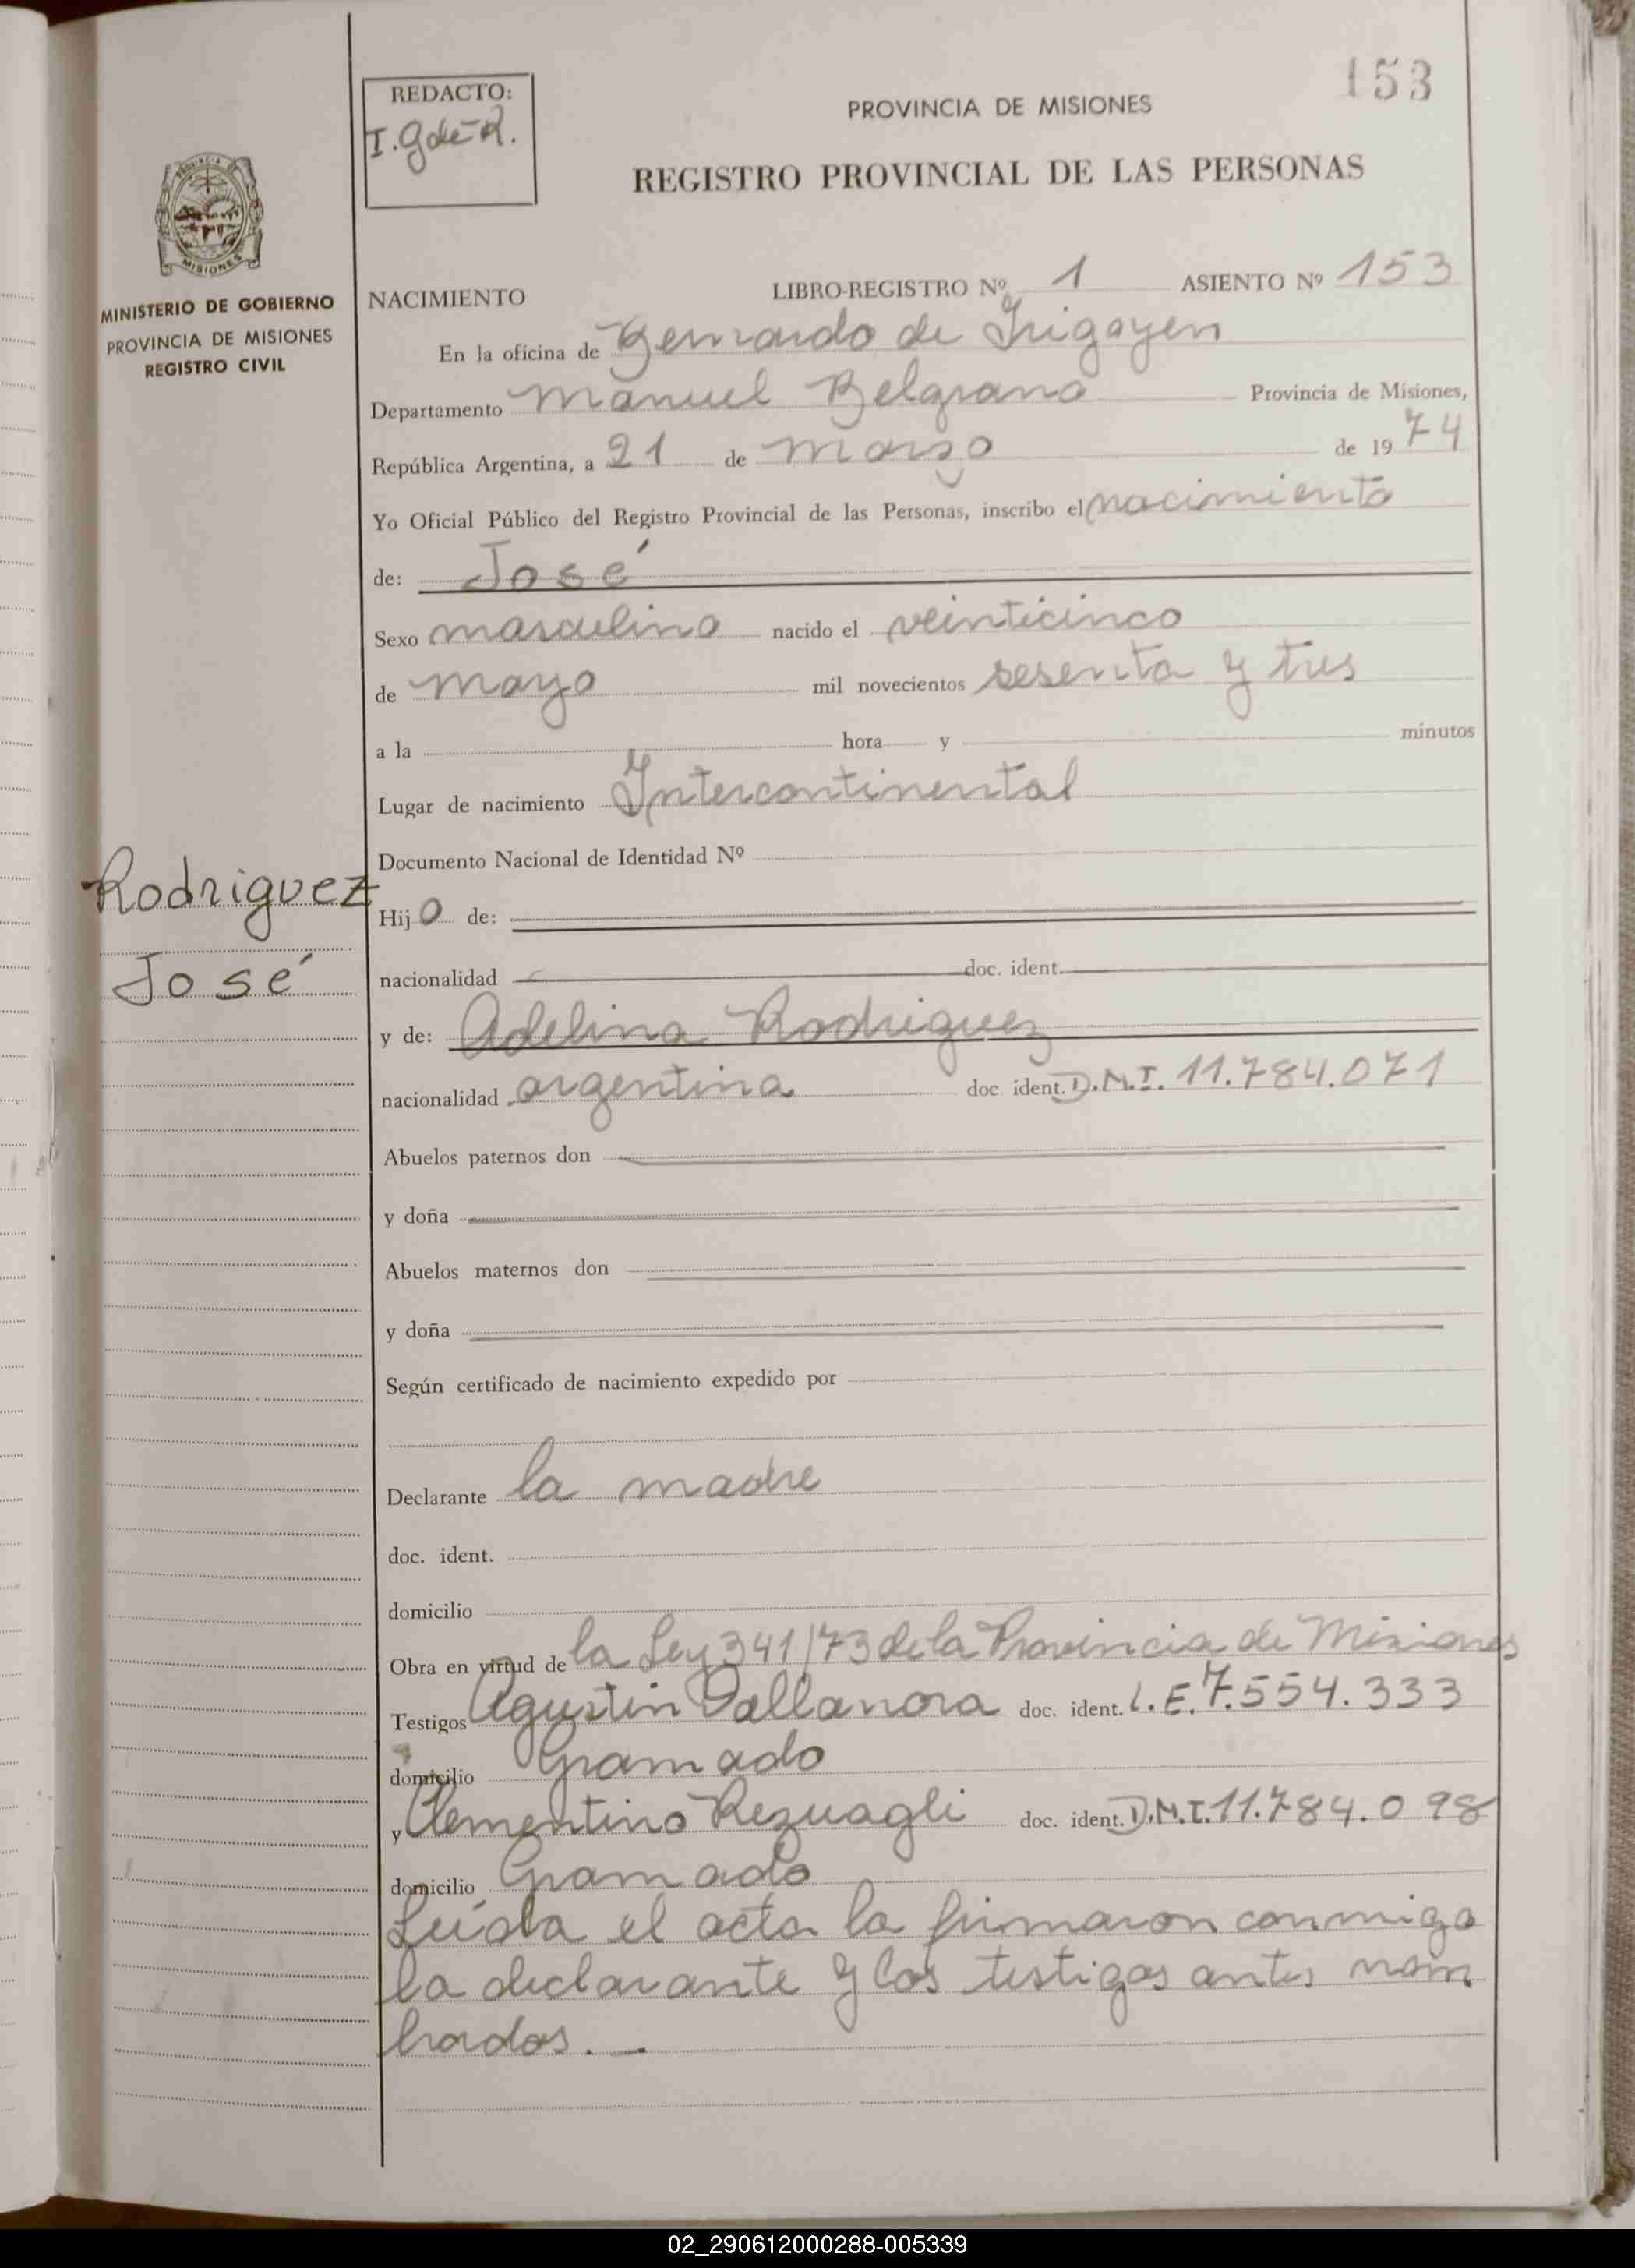 153
REDACTO:
PROVINCIA DE MISIONES
REGISTRO PROVINCIAL DE LAS PERSONAS
PROVINCIA DE
MISIONES
MINISTERIO DE GOBIERNO
PROVINCIA DE MISIONES
REGISTRO CIVIL
NACIMIENTO LIBRO-REGISTRO Nº 1 ASIENTO Nº 153
En la oficina de Bernardo de Irigoyen
Departamento Manuel Belgrano Provincia de Misiones,
República Argentina, a 21 de marzo de 1974
Yo Oficial Público del Registro Provincial de las Personas, inscribo el nacimiento
de: José
Sexo masculino nacido el veinticinco
de mayo mil novecientos sesenta y tres
a la hora y minutos
Lugar de nacimiento Intercontinental
Documento Nacional de Identidad Nº
Rodriguez
José
Hijo de:
nacionalidad doc. ident.
y de: Adelina Rodriguez
nacionalidad argentina doc. ident. D.N.I. 11.784.071
Abuelos paternos don
y doña
Abuelos maternos don
y doña
Según certificado de nacimiento expedido por
Declarante la madre
doc. ident.
domicilio
Obra en virtud de la Ley 341/73 de la Provincia de Misiones
Testigos Agustin doc. ident. L.E. 7.554.333
domicilio Gramado
y Clementino doc. ident. D.N.I. 11.784.098
domicilio Gramado
Leída el acta la firmaron conmigo
la declarante y los testigos antes nom
brados. —
02_290612000288-005339